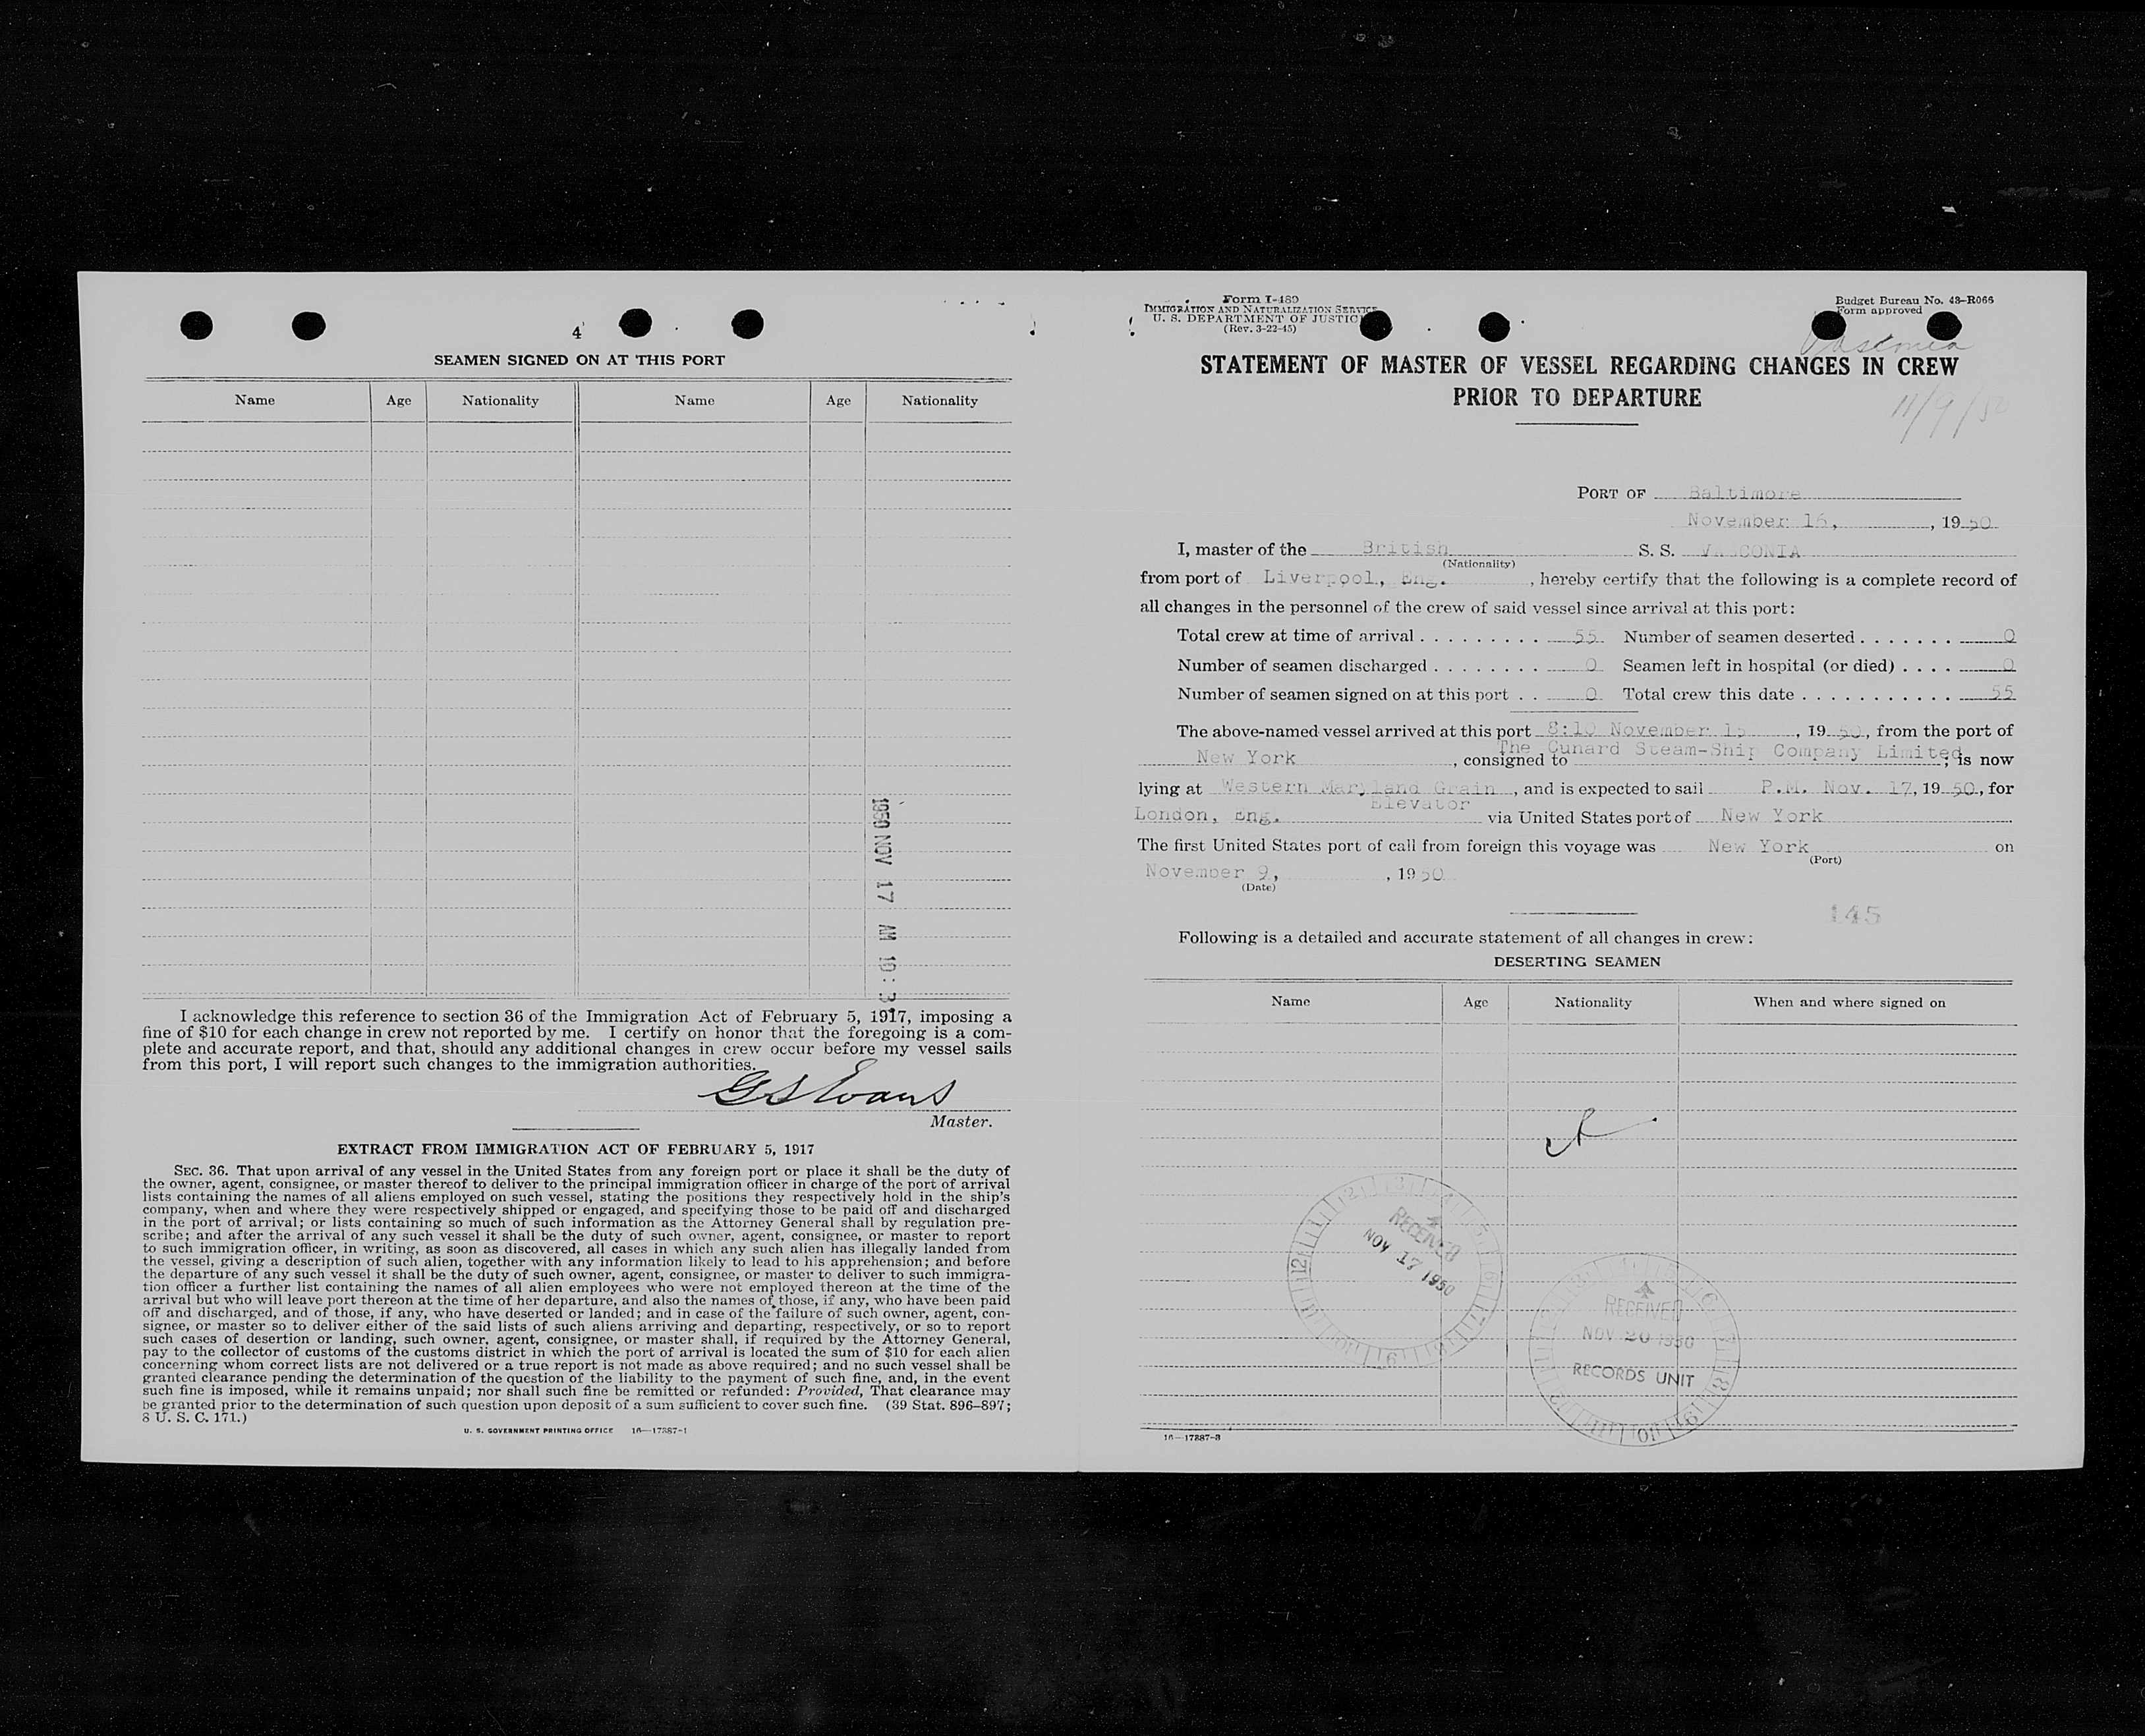 4
SEAMEN SIGNED ON AT THIS PORT
Name Age Nationality Name Age Nationality
1950 NOV 17 AM 10:3
I acknowledge this reference to section 36 of the Immigration Act of February 5, 1917, imposing a
fine of $10 for each change in crew not reported by me. I certify on honor that the foregoing is a com-
plete and accurate report, and that, should any additional changes in crew occur before my vessel sails
from this port, I will report such changes to the immigration authorities.
G S Evans
Master.
EXTRACT FROM IMMIGRATION ACT OF FEBRUARY 5, 1917
SEC. 36. That upon arrival of any vessel in the United States from any foreign port or place it shall be the duty of
the owner, agent, consignee, or master thereof to deliver to the principal immigration officer in charge of the port of arrival
lists containing the names of all aliens employed on such vessel, stating the positions they respectively hold in the ship's
company, when and where they were respectively shipped or engaged, and specifying those to be paid off and discharged
in the port of arrival; or lists containing so much of such information as the Attorney General shall by regulation pre-
scribe; and after the arrival of any such vessel it shall be the duty of such owner, agent, consignee, or master to report
to such immigration officer, in writing, as soon as discovered, all cases in which any such alien has illegally landed from
the vessel, giving a description of such alien, together with any information likely to lead to his apprehension; and before
the departure of any such vessel it shall be the duty of such owner, agent, consignee, or master to deliver to such immigra-
tion officer a further list containing the names of all alien employees who were not employed thereon at the time of the
arrival but who will leave port thereon at the time of her departure, and also the names of those, if any, who have been paid
off and discharged, and of those, if any, who have deserted or landed; and in case of the failure of such owner, agent, con-
signee, or master so to deliver either of the said lists of such aliens arriving and departing, respectively, or so to report
such cases of desertion or landing, such owner, agent, consignee, or master shall, if required by the Attorney General,
pay to the collector of customs of the customs district in which the port of arrival is located the sum of $10 for each alien
concerning whom correct lists are not delivered or a true report is not made as above required; and no such vessel shall be
granted clearance pending the determination of the question of the liability to the payment of such fine, and, in the event
such fine is imposed, while it remains unpaid; nor shall such fine be remitted or refunded: Provided, That clearance may
be granted prior to the determination of such question upon deposit of a sum sufficient to cover such fine. (39 Stat. 896–897;
8 U. S. C. 171.)
U. S. GOVERNMENT PRINTING OFFICE 16—17387-1
Form I-489
IMMIGRATION AND NATURALIZATION SERVICE
U. S. DEPARTMENT OF JUSTICE
(Rev. 3-22-45)
Budget Bureau No. 43-R066
Form approved
Vasconia
STATEMENT OF MASTER OF VESSEL REGARDING CHANGES IN CREW
PRIOR TO DEPARTURE
11/9/50
PORT OF Baltimore
November 16, , 19 50
I, master of the British S. S. VASCONIA
(Nationality)
from port of Liverpool, Eng. , hereby certify that the following is a complete record of
all changes in the personnel of the crew of said vessel since arrival at this port:
Total crew at time of arrival . . . . . . . . . 55 Number of seamen deserted . . . . . . . 0
Number of seamen discharged . . . . . . . . 0 Seamen left in hospital (or died) . . . . 0
Number of seamen signed on at this port . . 0 Total crew this date . . . . . . . . . . . 55
The above-named vessel arrived at this port 8:10 November 15 , 19 50, from the port of
New York , consigned to The Cunard Steam-Ship Company Limited; is now
lying at Western Maryland Grain , and is expected to sail P.M. Nov. 17, 19 50, for
Elevator
London, Eng. via United States port of New York
The first United States port of call from foreign this voyage was New York on
(Port)
November 9, , 19 50
(Date)
145
Following is a detailed and accurate statement of all changes in crew:
DESERTING SEAMEN
Name Age Nationality When and where signed on
RECEIVED
NOV 17 1950
RECEIVED
NOV 20 1950
RECORDS UNIT
16—17387-3